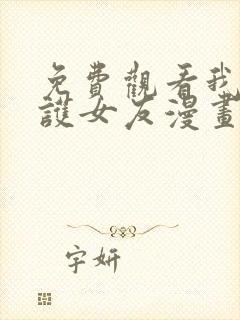 免費觀看我
護女友漫畫
字妍